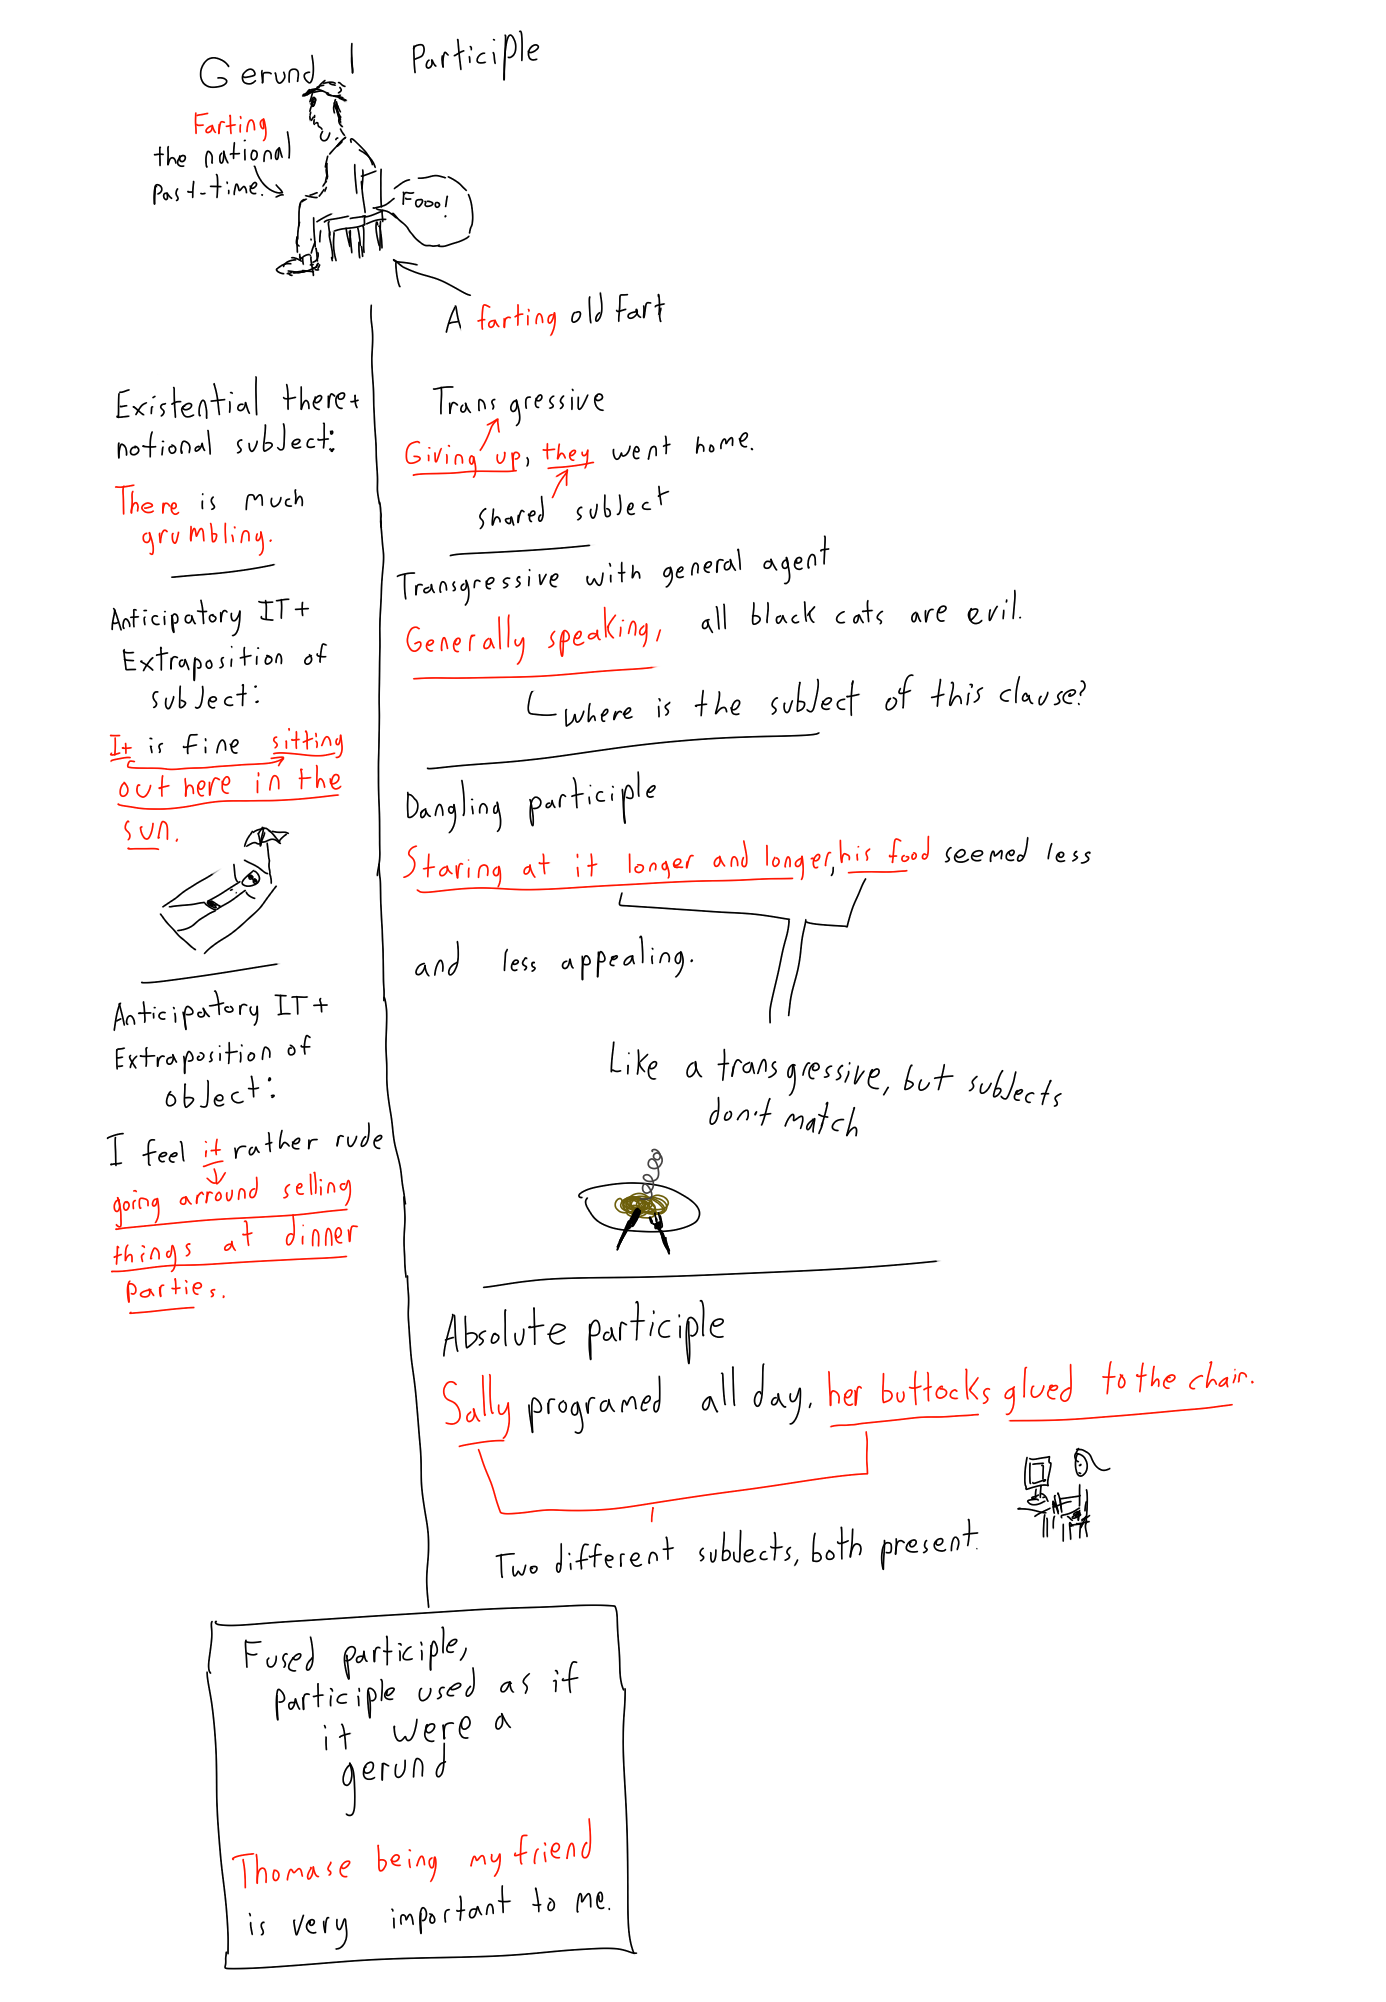 Gerund | Participle
Farting
the national
past-time.
Fooo!
A farting old fart
Existential there+
notional subject:
There is much
grumbling.
Anticipatory IT+
Extraposition of
subject:
It is fine sitting
out here in the
sun.
Anticipatory IT+
Extraposition of
object:
I feel it rather rude
going arround selling
things at dinner
parties.
Transgressive
Giving up, they went home.
shared subject
Transgressive with general agent
Generally speaking, all black cats are evil.
where is the subject of this clause?
Dangling participle
Staring at it longer and longer, his food seemed less
and less appealing.
Like a transgressive, but subjects
don't match
Absolute participle
Sally programed all day, her buttocks glued to the chair.
Two different subjects, both present.
Fused participle,
participle used as if
it were a
gerund
Thomase being my friend
is very important to me.